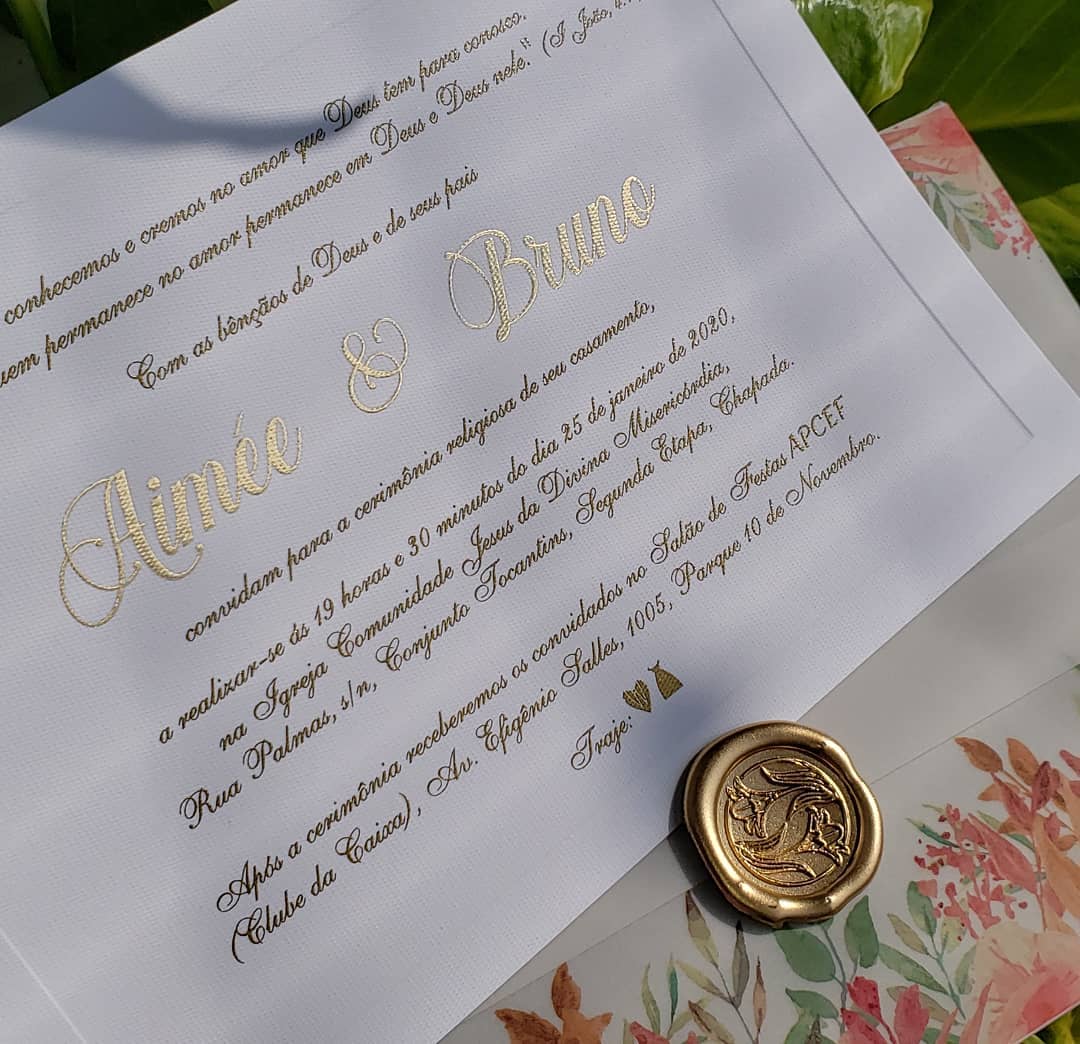 conhecemos e cremos no amor que Deus tem para conosco.
permanece no amor permanece em Deus e Deus nele." (I João, 4.
Com as bênçãos de Deus e de seus pais
Aimée & Bruno
convidam para a cerimônia religiosa de seu casamento,
a realizar-se ás 19 horas e 30 minutos do dia 25 de janeiro de 2020,
na Igreja Comunidade Jesus da Divina Misericórdia,
Rua Palmas, s/n, Conjunto Tocantins, Segunda Etapa, Chapada.
Após a cerimônia receberemos os convidados no Salão de Festas APCEF
(Clube da Caixa), Av. Efigênio Salles, 1005, Parque 10 de Novembro.
Traje: